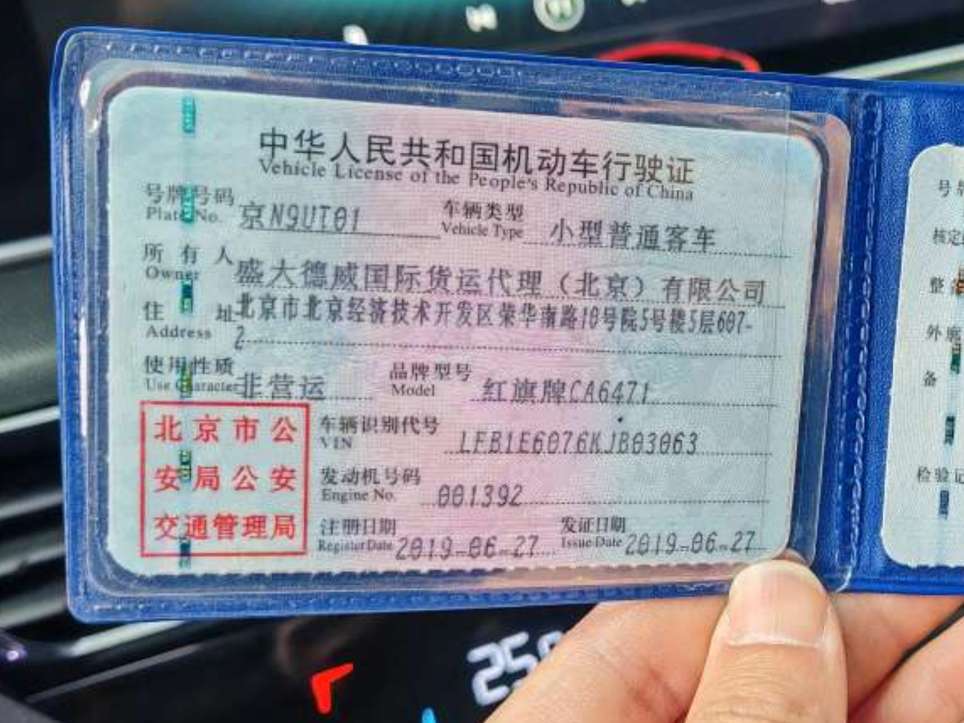 中华人民共和国机动车行驶证
Vehicle License of the People's Republic of China
号牌号码 京N9UT01 车辆类型 小型普通客车
Plate No. Vehicle Type
所有人 盛大德威国际货运代理（北京）有限公司
Owner
住址 北京市北京经济技术开发区荣华南路10号院5号楼5层607-
Address 2
使用性质 非营运 品牌型号 红旗牌CA6471
Use Character Model
北京市公
安局公安
交通管理局
车辆识别代号 LFB1E6076KJB03063
VIN
发动机号码 001392
Engine No.
注册日期 2019-06-27 发证日期 2019-06-27
Register Date Issue Date
号牌
核定
整备
外廓
备
检验记
25